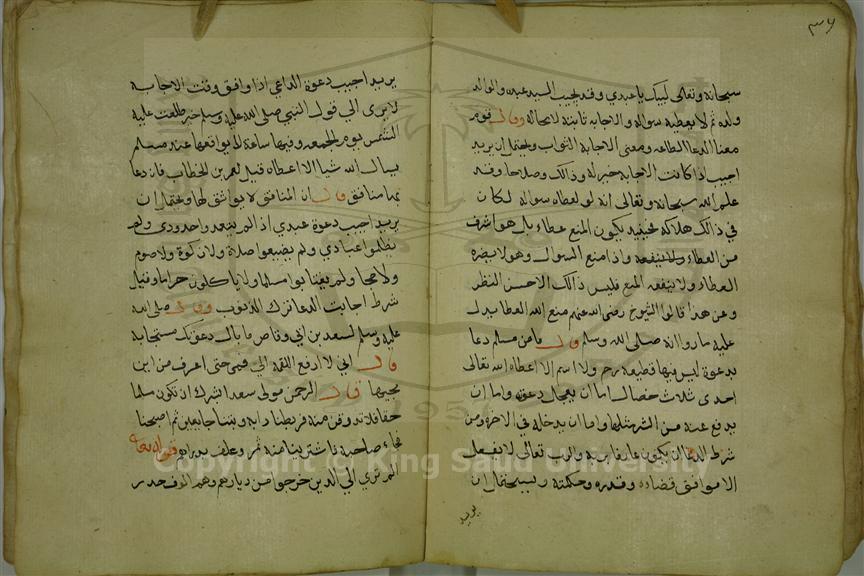 ٣٦
سبحانه وتعالى لبيك ياعبدي وقد يجيب السيد عبده والوالد
ولده ثم لا يعطيه سواله والاجابه ثابتة لامحالة وقال قوم
معنا الدعا الطاعه ومعنى الاجابه الثواب ويحتمل ان يريد
اجيب اذا كانت الاجابه خيرا له وذالك وصلاحا وقد
علم الله سبحانه وتعالى انه لو اعطاه سواله لكان
في ذالك هلاكه فحينيذ يكون المنع عطاء بل هو اشرف
من العطاء ولا ينفعه واذا منع السول وهو لا يضره
العطاء ولا ينفعه المنع فليس ذالك الاحسن النظر
وعن هذا قالوا الشيوخ رضي الله عنهم منع الله العطا يدل
عليه ما روا انه صلى الله وسلم قال ما من مسلم دعا
بدعوة ليس فيها قطيعة رحم ولا اسم الا اعطاه الله تعالى
احدى ثلاث خصال اما ان يعجل دعوته واما ان
يدفع عنه من الشر مثلها واما ان يدخله في الاخره ومن
شرط الدعا ان يكون عارفا بربه والرب تعالى لا يفعل
الا موافق قضاءه وقدره وحكمته ويحتمل ان
يريد
يريد اجيب دعوة الداعي اذا وافق وقت الاجابه
لا يرى الي قول النبي صلى الله عليه وسلم خير طلعت عليه
الشمس يوم الجمعه وفيها ساعة لا يواقعها عبد مسلم
يسال الله شيا الا اعطاه قيل لعمر بن الخطاب فان دعا
بها منافق قال ان المنافق لا يوافق لها ويحتمل ان
يريد اجيب دعوة عبدي اذا لم يتعد واحدودي ولم
يظلموا عبادي ولم يضيعوا صلاة ولا زكوة ولا صوم
ولا حجا ولم يغتابوا مسلما ولا ياكلون حراما وقيل
شرط اجابت الدعا ترك الذنوب وقال صلى الله
عليه وسلم لسعد بن ابي وقاص ما بال دعوتك مستجابه
قال اني لا ارفع اللقمه الي فمي حتى اعرف من اين
مجيها قال الرحمن مولى سعد اشرك ان تكون مسلما
حقا فلا تدوقن منه فربطنا دابه وبتنا جايعين ثم اصبحنا
فجاء صاحبه فاشترينا منه تمر وعلف بدراهم قوله تعالى
الم ترى الي الذين خرجوا من ديارهم وهم الوف حذر
Copyright © King Saud University
1957